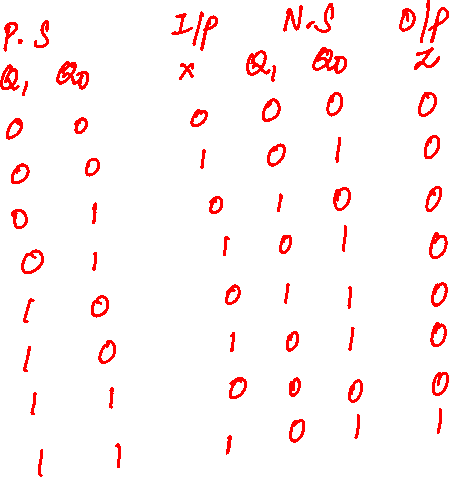 P.S I/P N.S O/P
Q1 Q0 x Q1 Q0 Z
0 0 0 0 0 0
0 0 1 0 1 0
0 1 0 1 0 0
0 1 1 0 1 0
1 0 0 1 1 0
1 0 1 0 1 0
1 1 0 0 0 0
1 1 1 0 1 1